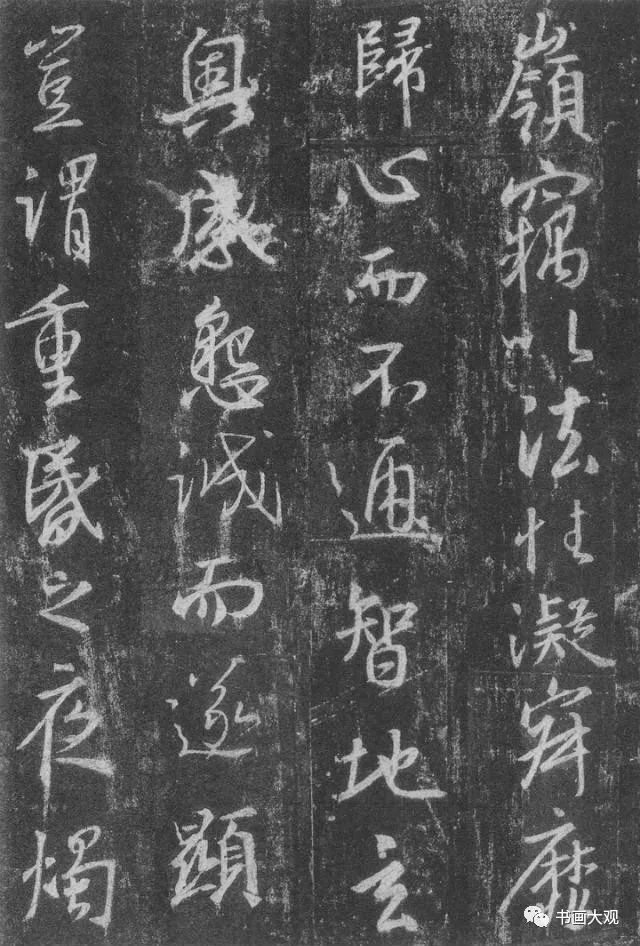 嶺竊以法性凝寂靡
歸心而不通智地玄
奧感懇誠而遂顯
豈謂重昏之夜燭
书画大观